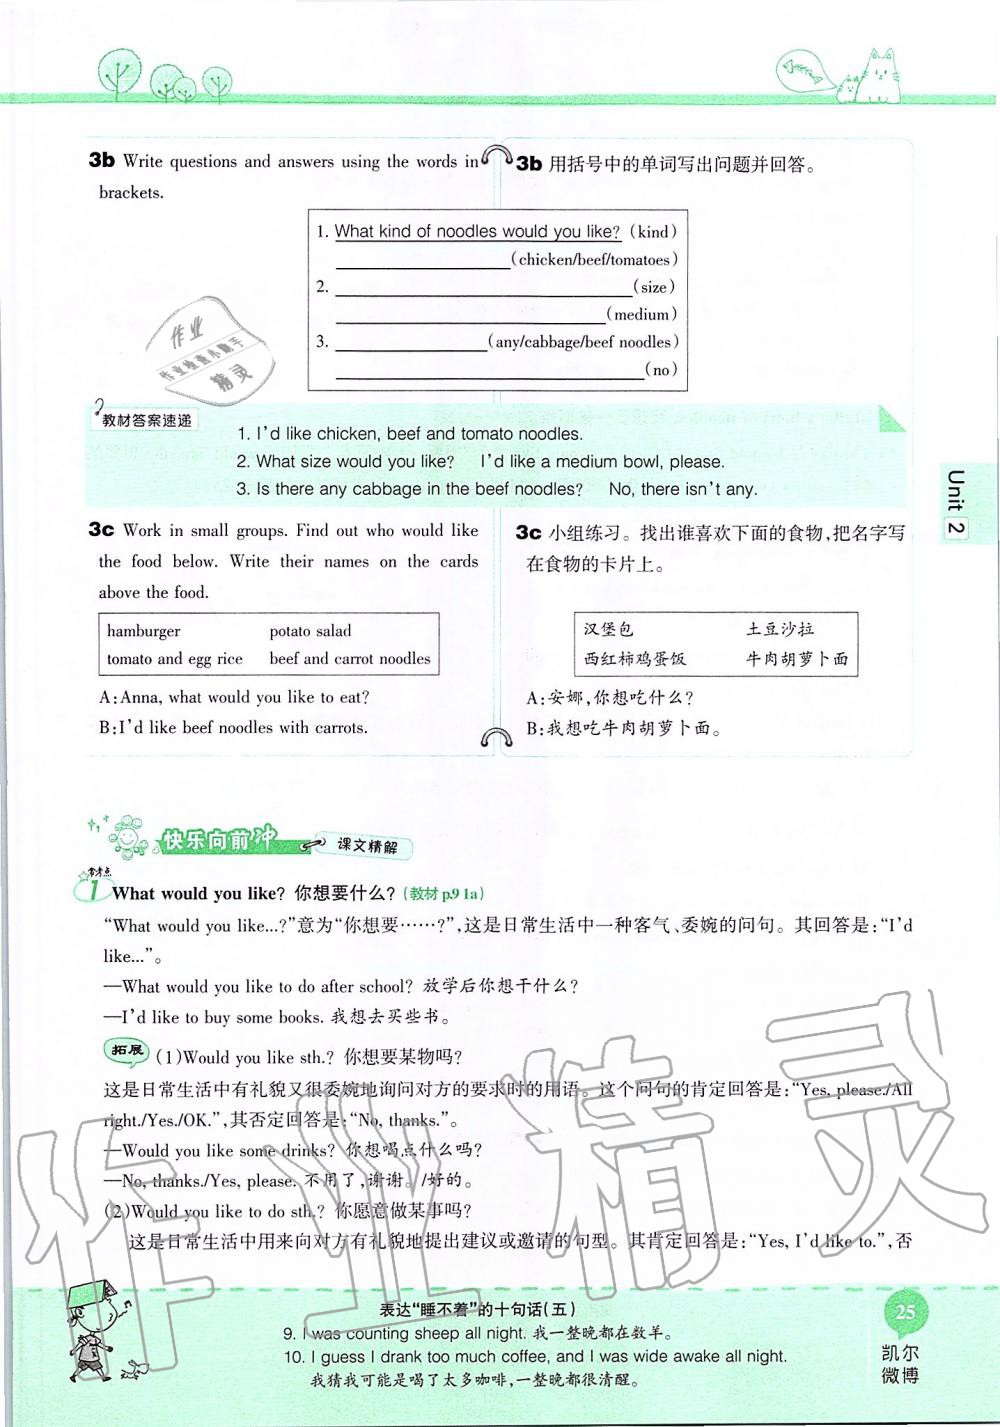 3b Write questions and answers using the words in
brackets.
3b 用括号中的单词写出问题并回答。
1. What kind of noodles would you like? (kind)
(chicken/beef/tomatoes)
2. (size)
(medium)
3. (any/cabbage/beef noodles)
(no)
作业
作业检查小助手
精灵
教材答案速递
1. I'd like chicken, beef and tomato noodles.
2. What size would you like? I'd like a medium bowl, please.
3. Is there any cabbage in the beef noodles? No, there isn't any.
Unit 2
3c Work in small groups. Find out who would like
the food below. Write their names on the cards
above the food.
hamburger potato salad
tomato and egg rice beef and carrot noodles
A:Anna, what would you like to eat?
B:I'd like beef noodles with carrots.
3c 小组练习。找出谁喜欢下面的食物,把名字写
在食物的卡片上。
汉堡包 土豆沙拉
西红柿鸡蛋饭 牛肉胡萝卜面
A:安娜,你想吃什么?
B:我想吃牛肉胡萝卜面。
快乐向前冲 课文精解
常考点
1 What would you like? 你想要什么? (教材 p.9 1a)
“What would you like...?”意为“你想要……?”,这是日常生活中一种客气、委婉的问句。其回答是:“I'd
like...”。
—What would you like to do after school? 放学后你想干什么?
—I'd like to buy some books. 我想去买些书。
拓展 (1)Would you like sth.? 你想要某物吗?
这是日常生活中有礼貌又很委婉地询问对方的要求时的用语。这个问句的肯定回答是:“Yes, please./All
right./Yes./OK.”,其否定回答是:“No, thanks.”。
—Would you like some drinks? 你想喝点什么吗?
—No, thanks./Yes, please. 不用了,谢谢。/好的。
(2)Would you like to do sth.? 你愿意做某事吗?
这是日常生活中用来向对方有礼貌地提出建议或邀请的句型。其肯定回答是:“Yes, I'd like to.”,否
作业精灵
表达“睡不着”的十句话(五)
9. I was counting sheep all night. 我一整晚都在数羊。
10. I guess I drank too much coffee, and I was wide awake all night.
我猜我可能是喝了太多咖啡,一整晚都很清醒。
25
凯尔
微博